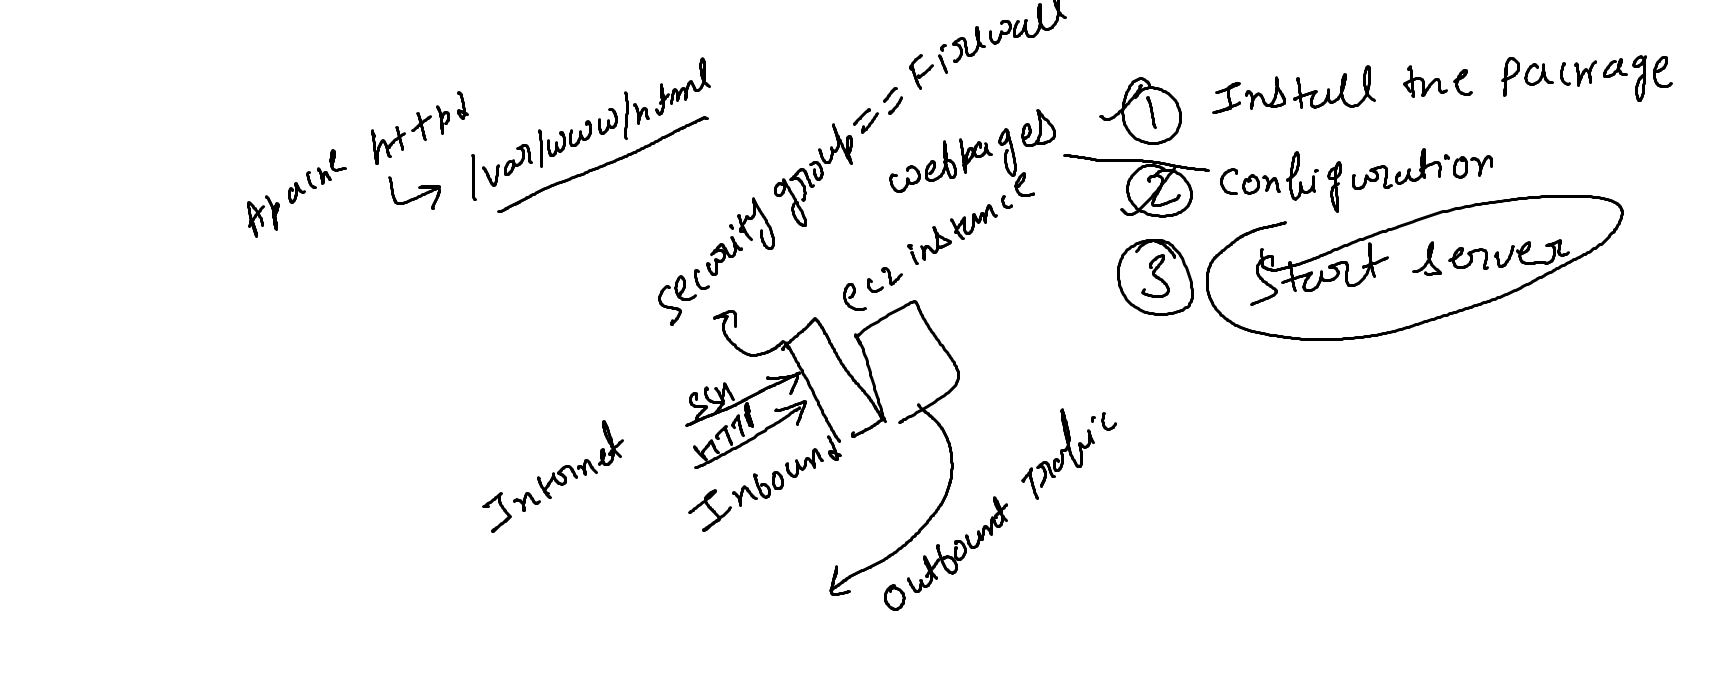 Apache httpd
/var/www/html
security group == Firewall
webpages
ec2 instance
1 Install the Package
2 configuration
3 Start server
SSH
HTTP
Internet
Inbound
outbound Traffic